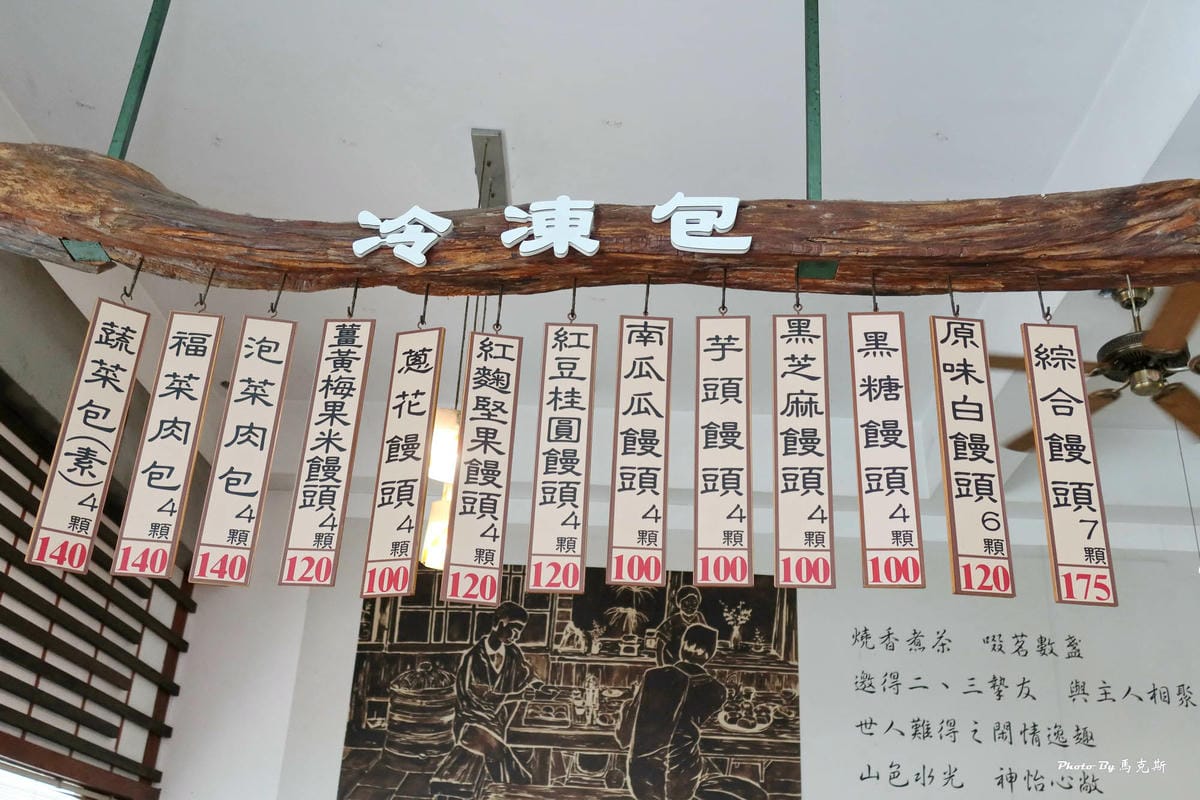 冷凍包
蔬菜包(素)4顆
140
福菜肉包4顆
140
泡菜肉包4顆
140
薑黃梅果米饅頭4顆
120
蔥花饅頭4顆
100
紅麴堅果饅頭4顆
120
紅豆桂圓饅頭4顆
120
南瓜瓜饅頭4顆
100
芋頭饅頭4顆
100
黑芝麻饅頭4顆
100
黑糖饅頭4顆
100
原味白饅頭6顆
120
綜合饅頭7顆
175
燒香煮茶 啜茗數盞
邀得二、三摯友 與主人相聚
世人難得之閒情逸趣
山色水光 神怡心敞
Photo By 馬克斯